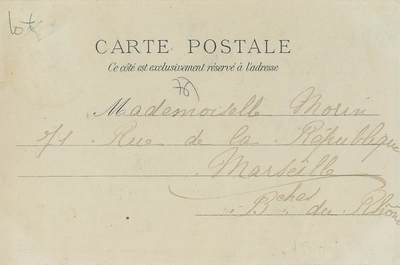 lot
CARTE POSTALE
Ce côté est exclusivement réservé à l'adresse
Mademoiselle Morin
71 Rue de la République
Marseille
Bches du Rhône